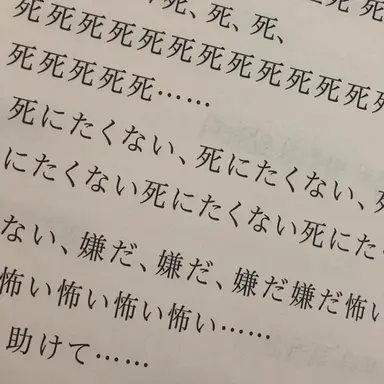 死、死、死、
死死死死死死死死死死死死死
死死死死死……
死にたくない、死にたくない、死
にたくない死にたくない死にた
ない、嫌だ、嫌だ、嫌だ嫌だ怖い
怖い怖い怖い怖い……
助けて……